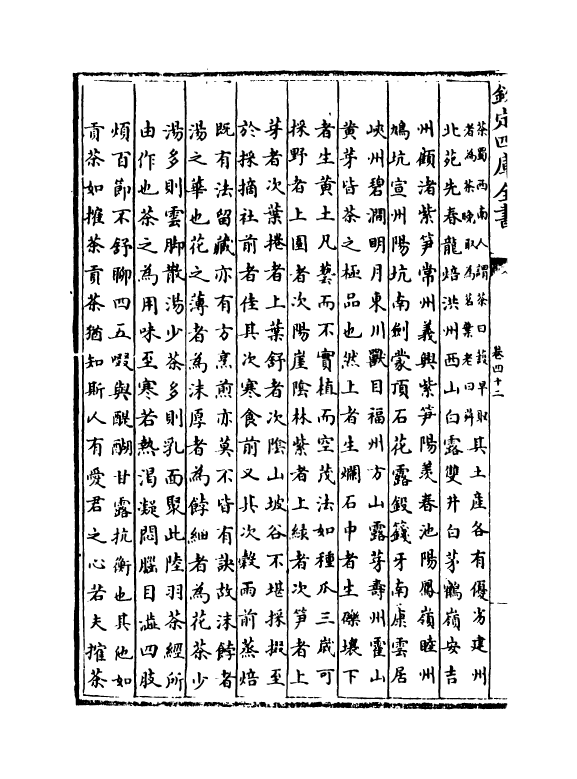 欽定四庫全書
卷四十二
茶蜀西南人謂茶曰蔎早取
者為茶晚取為茗葉老曰荈
其土產各有優劣建州
北苑先春龍焙洪州西山白露雙井白茅鶴嶺安吉
州顧渚紫笋常州義興紫笋陽羡春池陽鳳嶺睦州
鳩坑宣州陽坑南劍蒙頂石花露鋑籛牙南康雲居
峽州碧澗明月東川獸目福州方山露芽壽州霍山
黄芽皆茶之極品也然上者生爛石中者生礫壤下
者生黄土凡藝而不實植而空茂法如種瓜三歲可
採野者上園者次陽崖陰林紫者上緑者次笋者上
芽者次葉捲者上葉舒者次陰山坡谷不堪採掇至
於採摘社前者佳其次寒食前又其次穀雨前蒸焙
既有法留藏亦有方烹煎亦莫不皆有訣故沫餑者
湯之華也花之薄者為沫厚者為餑細者為花茶少
湯多則雲脚散湯少茶多則乳面聚此陸羽茶經所
由作也茶之為用味至寒若熱渴凝悶腦目澁四肢
煩百節不舒聊四五啜與醍醐甘露抗衡也其他如
貢茶如搉茶貢茶猶知斯人有愛君之心若夫搉茶